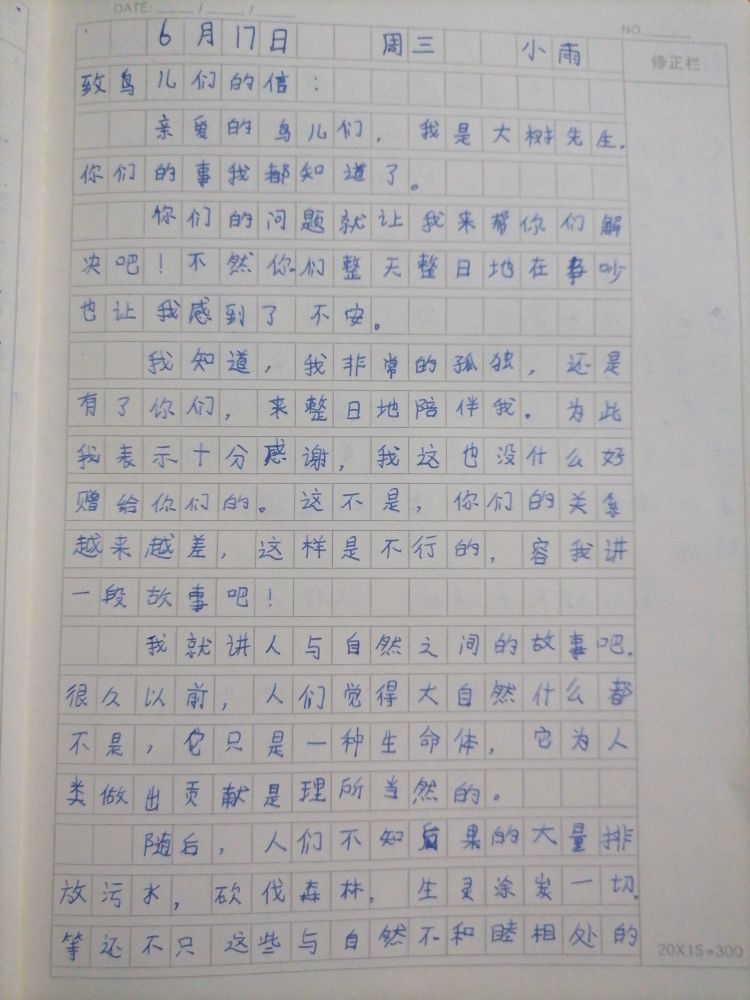 DATE: / /
NO.
修正栏
6月17日 周三 小雨
致鸟儿们的信：
亲爱的鸟儿们，我是大树先生。
你们的事我都知道了。
你们的问题就让我来帮你们解
决吧！不然你们整天整日地在争吵
也让我感到了不安。
我知道，我非常的孤独，还是
有了你们，来整日地陪伴我。为此
我表示十分感谢，我这也没什么好
赠给你们的。这不是，你们的关系
越来越差，这样是不行的，容我讲
一段故事吧！
我就讲人与自然之间的故事吧。
很久以前，人们觉得大自然什么都
不是，它只是一种生命体，它为人
类做出贡献是理所当然的。
随后，人们不知后果的大量排
放污水，砍伐森林，生灵涂炭一切。
等还不只这些与自然不和睦相处的
20X15=300